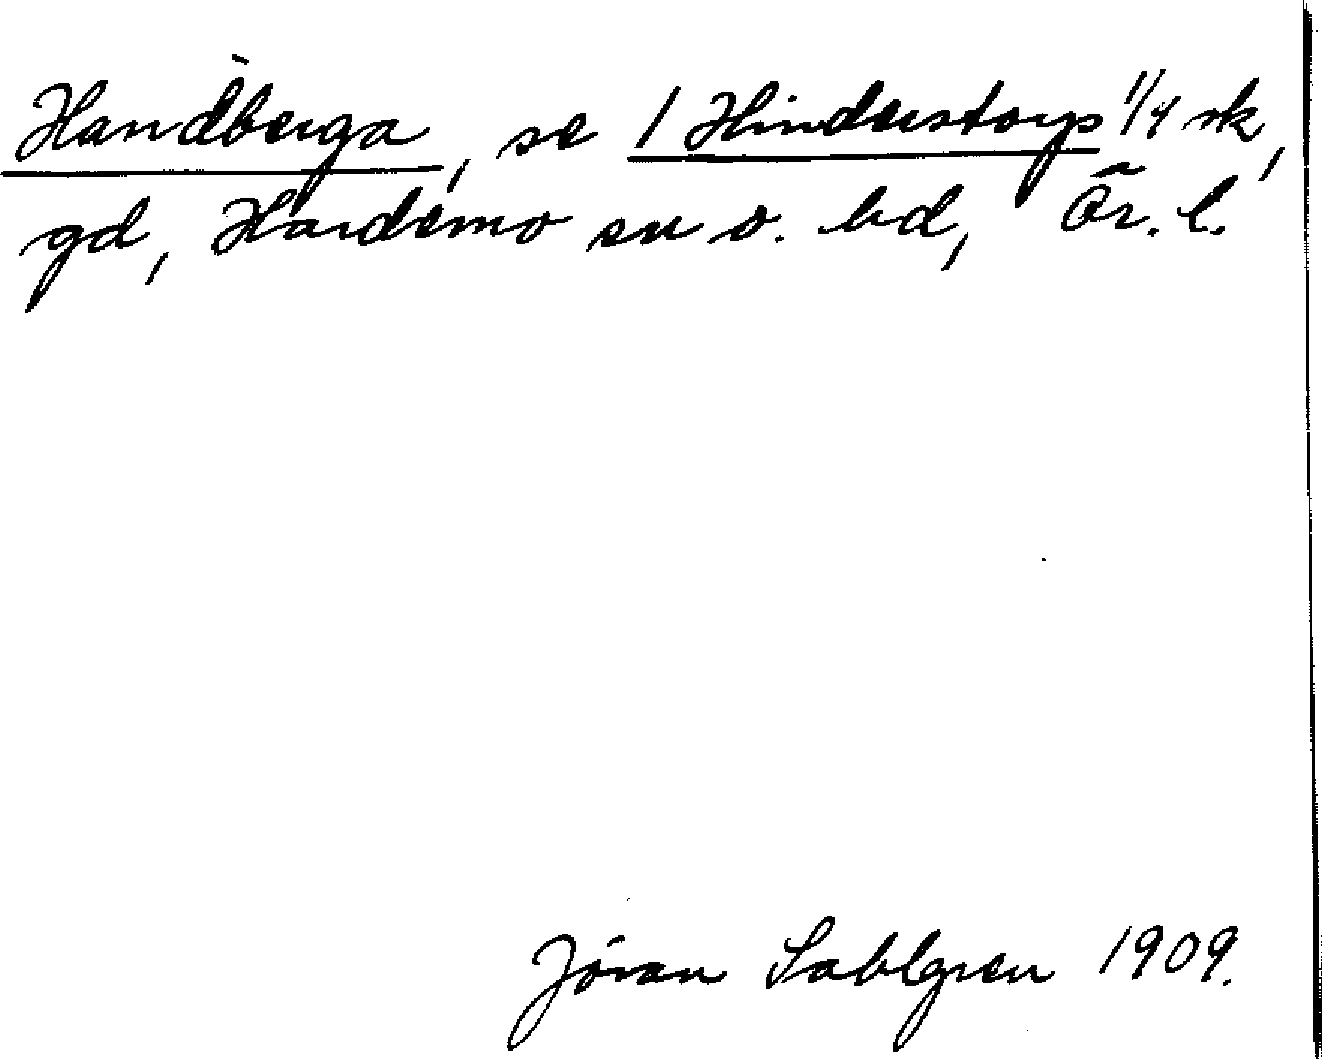 Handberga, se 1 Hinderstorps 1/4 sk,
gd, Hardemo sn o. hd, Ör. l.
Jöran Sahlgren 1909.